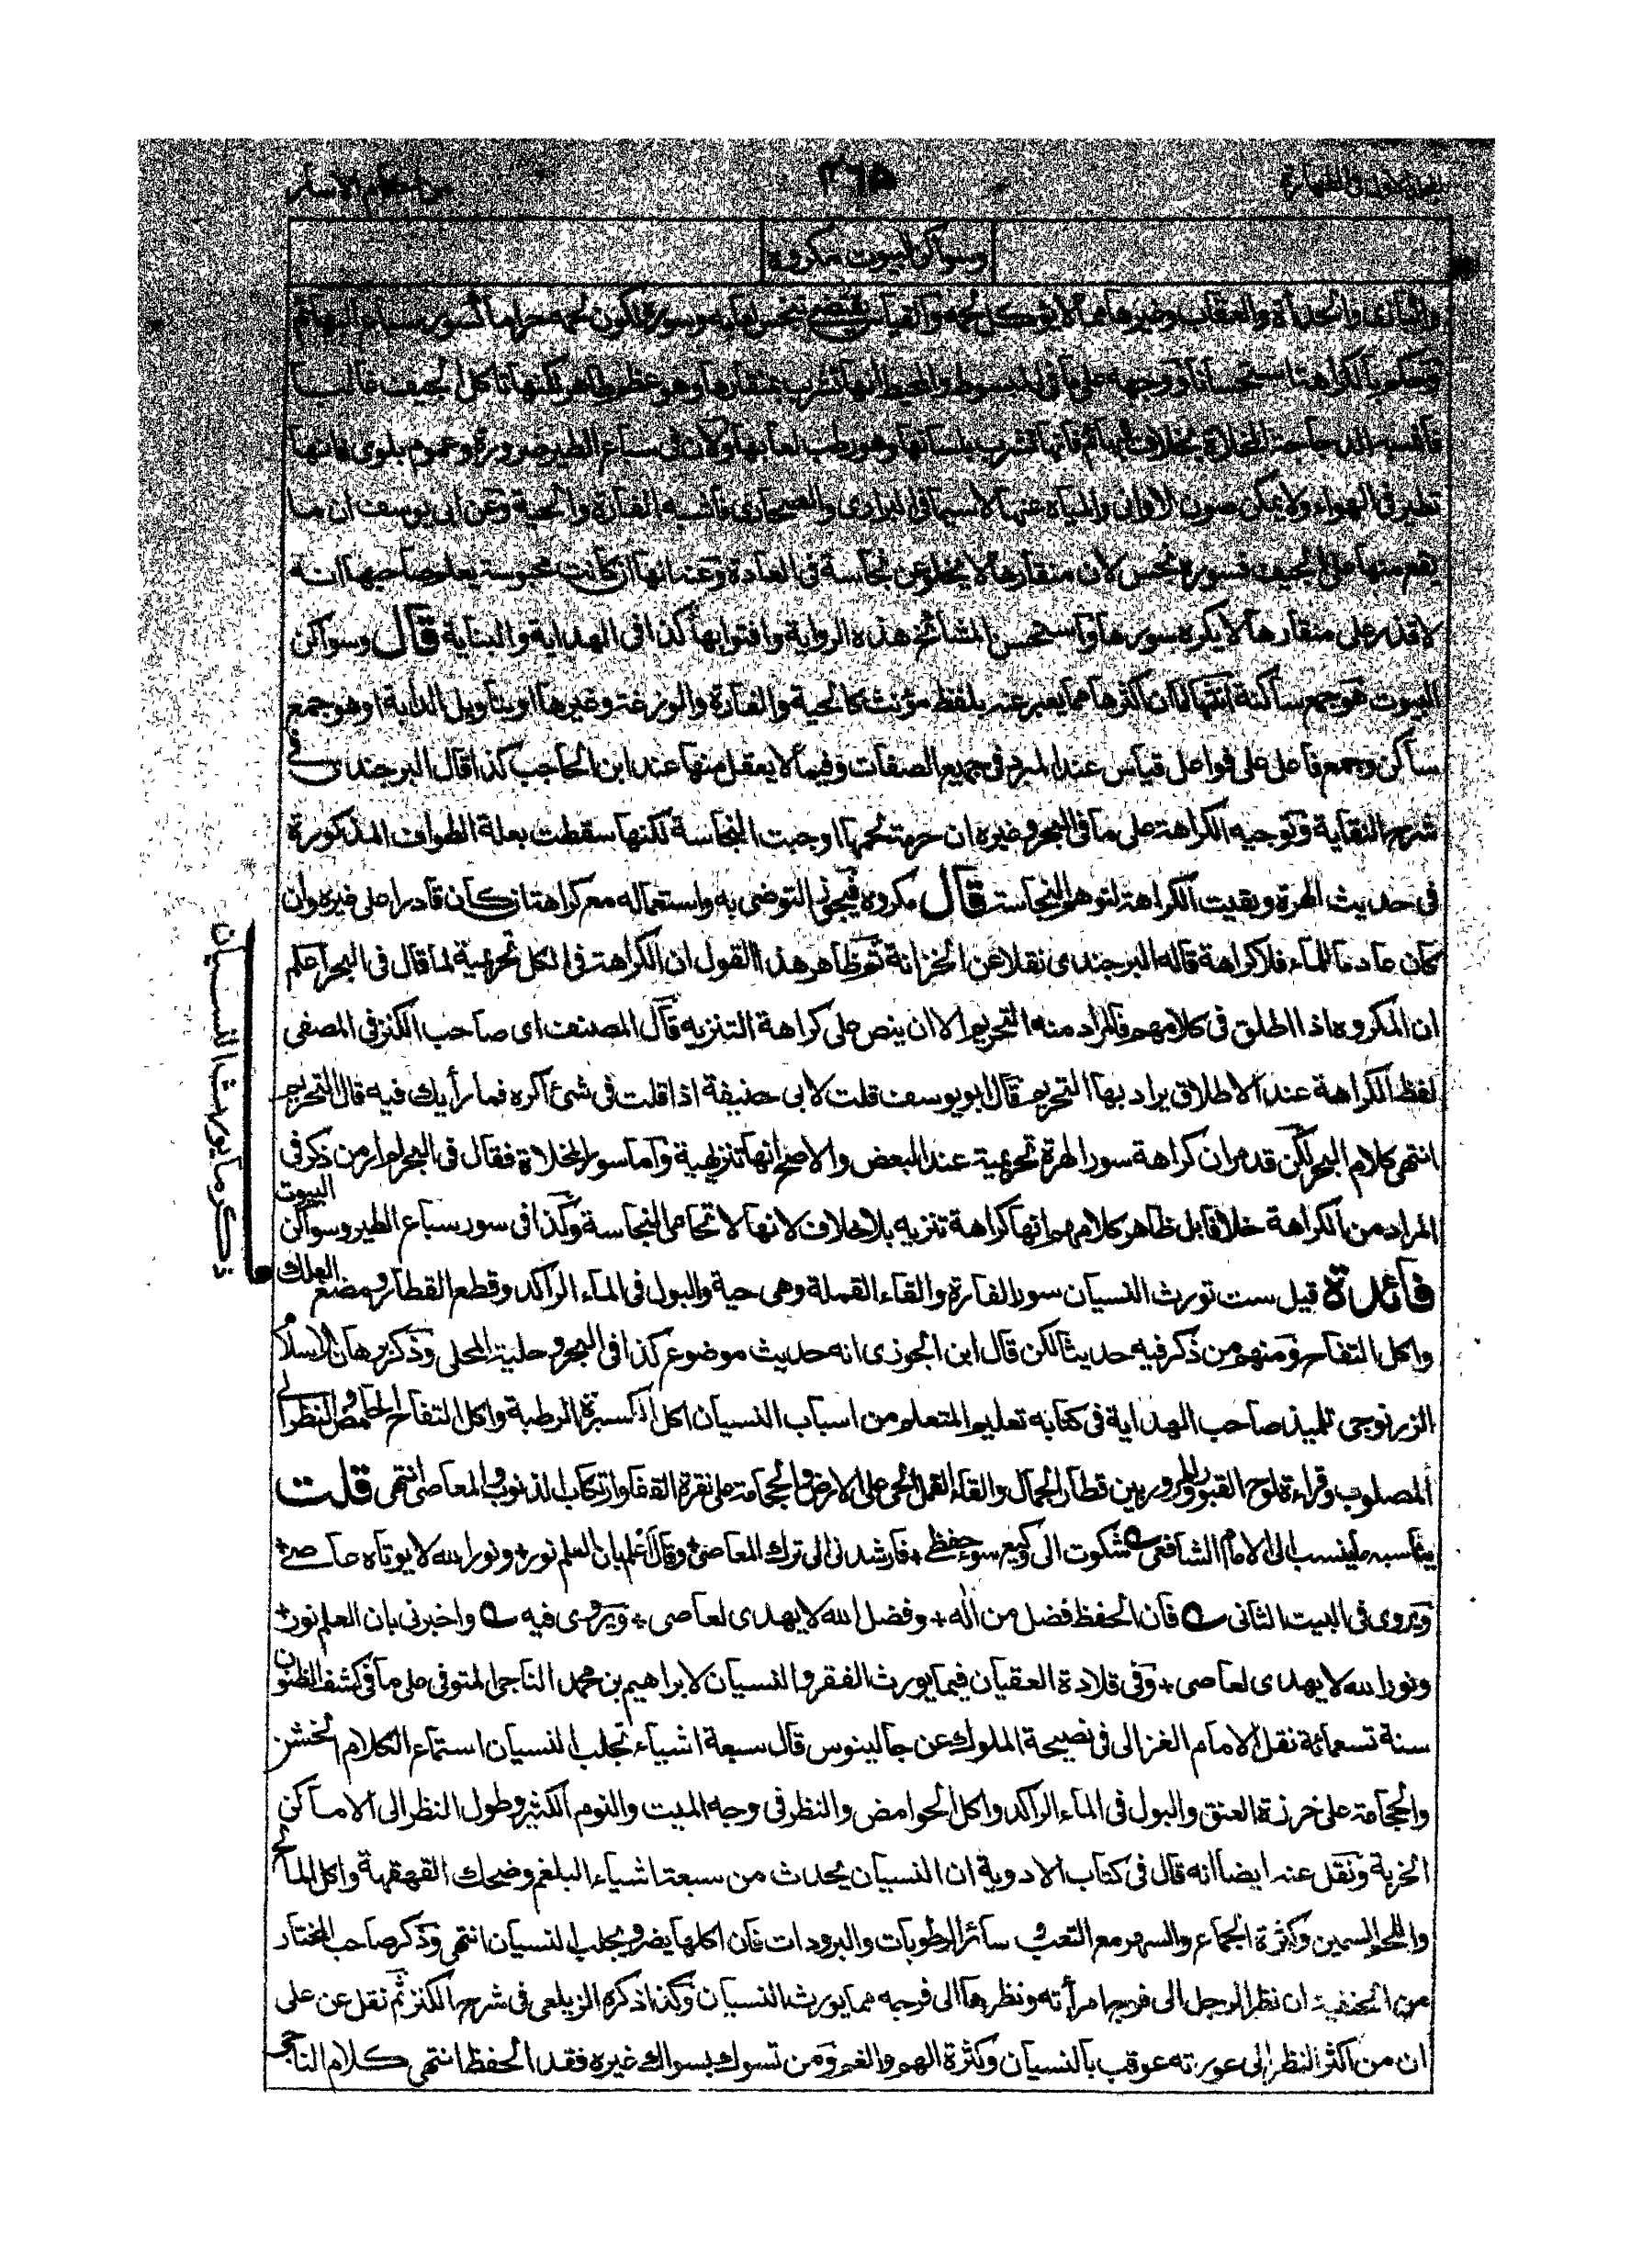 ٤٦٥
وسواكن البيوت مكروه
والبازى والحدأة والعقاب وغيرها مما لا يوكل لحمه والقياس يقتضى تنجس لعابه وسوره لكون لحمه حراما كسور سباع البهائم
وحكم بالكراهة استحسانا ووجهه على ما فى المبسوط والمحيط انها تشرب بمنقارها وهو عظم طاهر لكنها تاكل الجيف غالبا
فاشبه الدجاجة المخلاة بخلاف البهائم فانها تشرب بلسانها وهو رطب لعابها ولان فى سباع الطير ضرورة وعموم بلوى فانها
تطير فى الهواء ولا يمكن صون الاوانى والمياه عنها لاسيما فى البرارى والصحارى فاشبه الفارة والحية وعن ابى يوسف ان ما
يقع منها على الجيف فسوره نجس لان منقارها لا يخلو عن نجاسة فى العادة وعنه انها ان كانت محبوسة يعلم صاحبها انه
لا قذر على منقارها لا يكره سورها واستحسن المشائخ هذه الرواية وافتوا بها كذا فى الهداية والبناية قال وسواكن
البيوت هو جمع ساكنة انثها لما ان اكثرها مما يعبر عنه بلفظ مؤنث كالحية والفارة والوزغة وغيرها او بتاويل الدابة او هو جمع
ساكن وجمع فاعل على فواعل قياس عند المبرد فى جميع الصفات وفيما لا يعقل منها عند ابن الحاجب كذا قال البرجندى فى
شرح النقاية وتوجيه الكراهة على ما فى البحر وغيره ان حرمة لحمها اوجبت النجاسة لكنها سقطت بعلة الطواف المذكورة
فى حديث الهرة وبقيت الكراهة لتوهم النجاسة قال مكروه فيجزى التوضى به واستعماله مع كراهة ان كان قادرا على غيره وان
كان عادما للماء فلا كراهة قاله البرجندى نقلا عن الخزانة ثم ظاهر هذا القول ان الكراهة فى الكل تحريمية لما قال فى البحر اعلم
ان المكروه اذا اطلق فى كلامهم فالمراد منه التحريم الا ان ينص على كراهة التنزيه قال المصنف اى صاحب الكنز فى المصفى
لفظ الكراهة عند الاطلاق يراد بها التحريم قال ابو يوسف قلت لابى حنيفة اذا قلت فى شئ اكره فما رأيك فيه قال التحريم
انتهى كلام البحر لكن قد مر ان كراهة سور الهرة تحريمية عند البعض والاصح انها تنزيهية واما سور المخلاة فقال فى البحر لم ار من ذكر فى
المراد من الكراهة خلافا بل ظاهر كلامهم انها كراهة تنزيه بلا خلاف لانها لا تحامى النجاسة وكذا فى سور سباع الطير وسواكن البيوت
فائدة قيل ست تورث النسيان سور الفارة والقاء القملة وهى حية والبول فى الماء الراكد وقطع القطار ومضغ العلك
واكل التفاح ومنهم من ذكر فيه حديثا لكن قال ابن الجوزى انه حديث موضوع كذا فى البحر وحلية المحلى وذكر برهان الاسلام
الزرنوجى تلميذ صاحب الهداية فى كتابه تعليم المتعلم من اسباب النسيان اكل الكسبرة الرطبة واكل التفاح الحامض والنظر الى
المصلوب وقراءة لوح القبور والمرور بين قطار الجمال والقاء القمل الحى على الارض والحجامة على نقرة القفا وارتكاب الذنوب والمعاصى انتهى قلت
يناسبه ما ينسب الى الامام الشافعى شكوت الى وكيع سوء حفظى + فارشدنى الى ترك المعاصى + وقال اعلم بان العلم نور + ونور الله لا يوتاه عاصى +
ويروى فى البيت الثانى فان الحفظ فضل من الله + وفضل الله لا يهدى لعاصى + ويروى فيه واخبرنى بان العلم نور +
ونور الله لا يهدى لعاصى + وفى قلادة العقيان فيما يورث الفقر والنسيان لابراهيم بن محمد الناجى المتوفى على ما فى كشف الظنون
سنة تسعمائة نقل الامام الغزالى فى نصيحة الملوك عن جالينوس قال سبعة اشياء تجلب النسيان استماع الكلام الخشن
والحجامة على خرزة العنق والبول فى الماء الراكد واكل الحوامض والنظر فى وجه الميت والنوم الكثير وطول النظر الى الاماكن
الخربة ونقل عنه ايضا انه قال فى كتاب الادوية ان النسيان يحدث من سبعة اشياء البلغم وضحك القهقهة واكل المالح
واللحم السمين وكثرة الجماع والسهر مع التعب و سائر الرطوبات والبرودات فان اكلها يضر ويجلب النسيان انتهى وذكر صاحب المختار
من الحنفية ان نظر الرجل الى فرج امرأته ونظرها الى فرجه مما يورث النسيان وكذا ذكره الزيلعى فى شرح الكنز ثم نقل عن على
ان من اكثر النظر الى عورته عوقب بالنسيان وكثرة الهم والغم ومن تسوك بسواك غيره فقد الحفظ انتهى كلام الناجى
ذكر ما يورث النسيان